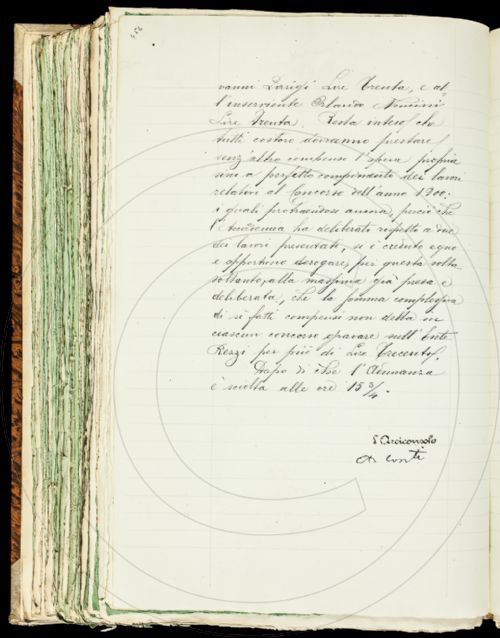 vanni Parigi Lire Trenta, e al-
l'inserviente Orlando
Lire Trenta. Resta inteso che
tutti costoro dovranno prestare
senz'altro compenso l'opera propria
sino a perfetto compimento dei lavori
relativi al Concorso dell'anno 1900;
i quali protraendosi ancora, perciò che
l'Accademia ha deliberato rispetto a due
dei lavori presentati, si è creduto equo
e opportuno derogare, per questa volta
soltanto, alla massima già presa e
deliberata, che la somma complessiva
di sì fatti compensi non debba in
ciascun concorso gravare sull'Ente
Rezzi per più di Lire Trecento.
Dopo di che l'Adunanza
è sciolta alle ore 15 3/4.
L'Arciconsolo
A Conti